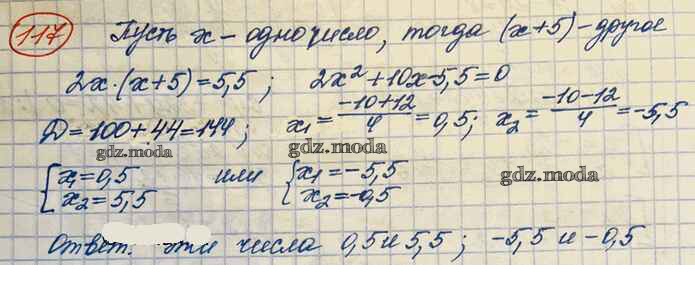 117 Пусть x - одно число, тогда (x+5) - другое
2x·(x+5)=5,5; 2x²+10x-5,5=0
D=100+44=144; x₁=(-10+12)/4=0,5; x₂=(-10-12)/4=-5,5
gdz.moda gdz.moda gdz.moda
{x₁=0,5 или {x₁=-5,5
gdz.moda
x₂=5,5 x₂=-0,5
Ответ: эти числа 0,5 и 5,5; -5,5 и -0,5